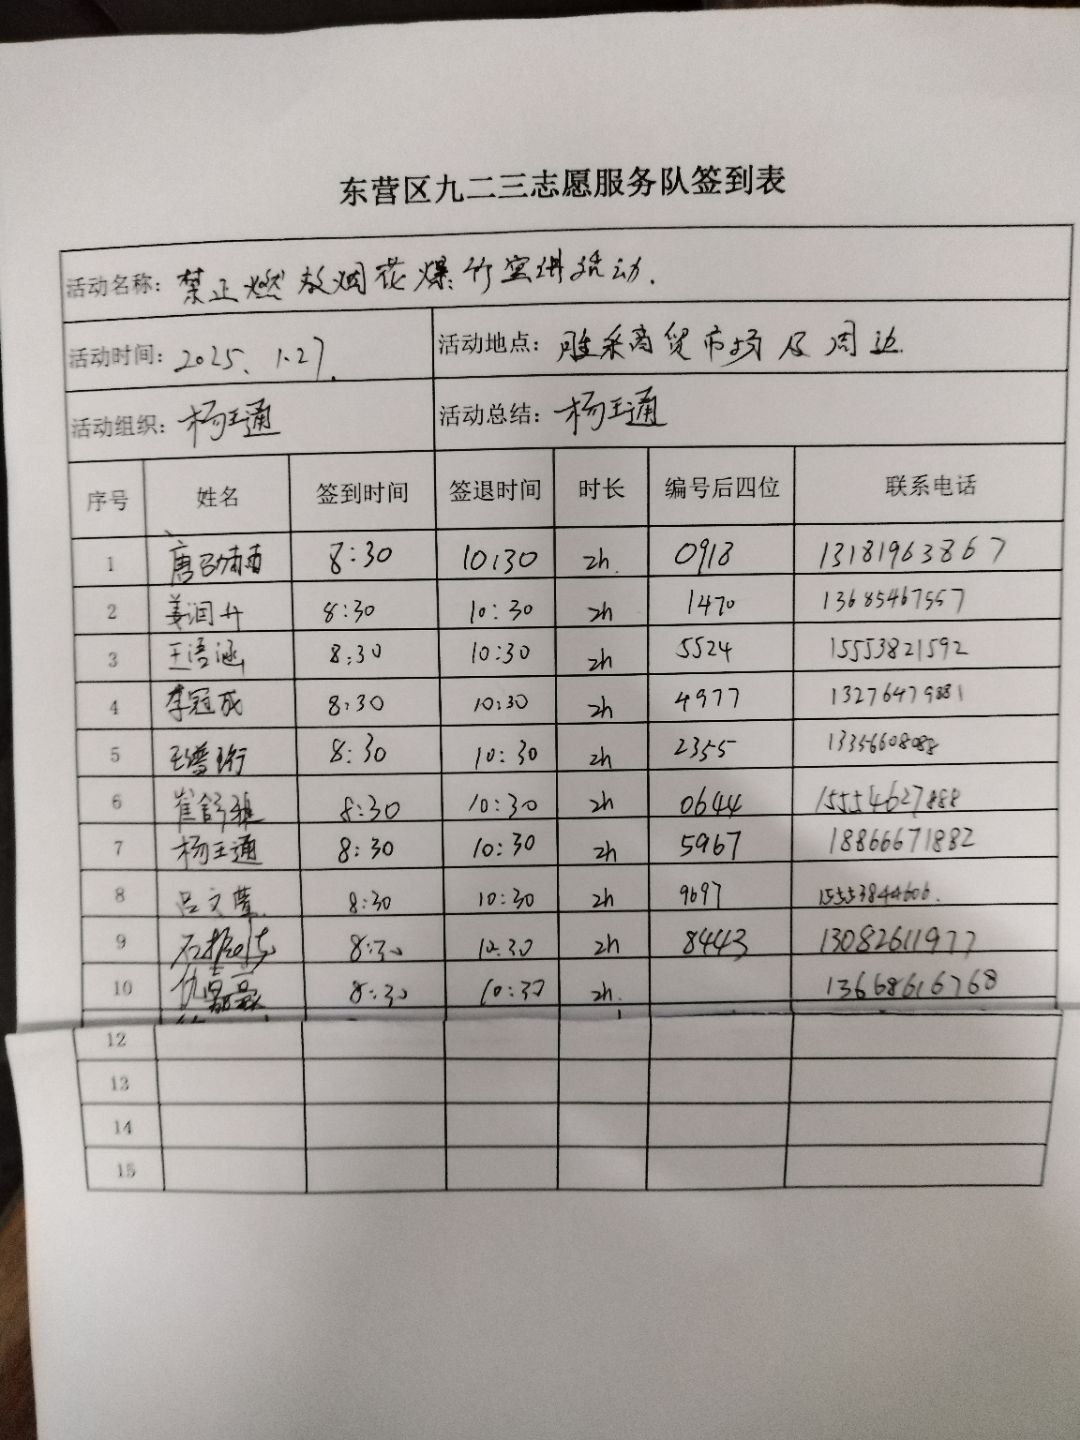 东营区九二三志愿服务队签到表
活动名称: 禁止燃放烟花爆竹宣讲活动.
活动时间: 2025. 1.27. 活动地点: 胜采商贸市场及周边.
活动组织: 杨玉通 活动总结: 杨玉通
序号 姓名 签到时间 签退时间 时长 编号后四位 联系电话
1 唐 8:30 10:30 2h. 0918 13181963867
2 姜润升 8:30 10:30 2h 1470 13685467557
3 王语涵 8:30 10:30 2h 5524 15553821592
4 李冠成 8:30 10:30 2h 4977 13276479881
5 8:30 10:30 2h 2355 13356608088
6 崔舒雅 8:30 10:30 2h 0644 15554627888
7 杨玉通 8:30 10:30 2h 5967 18866671882
8 吕文萱 8:30 10:30 2h 9697 15553844606.
9 8:30 10.30 2h 8443 13082611977
10 8:30 10:30 2h. 13668616768
12
13
14
15